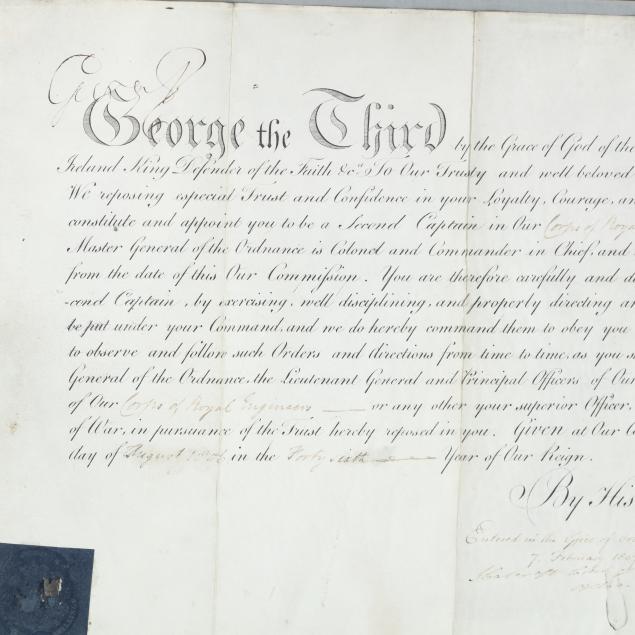 George R
George the Third by the Grace of God of the
Ireland King Defender of the Faith &c.ª To Our Trusty and well beloved
We reposing especial Trust and Confidence in your Loyalty, Courage, an
constitute and appoint you to be a Second Captain in Our Corps of Roya
Master General of the Ordnance is Colonel and Commander in Chief, and
from the date of this Our Commission. You are therefore carefully and d
-cond Captain, by exercising, well disciplining, and properly directing a
be put under your Command, and we do hereby command them to obey you
to observe and follow such Orders and directions from time to time, as you s
General of the Ordnance, the Lieutenant General and Principal Officers of Our
of Our Corps of Royal Engineers — or any other your superior Officer,
of War, in pursuance of the Trust hereby reposed in you. Given at Our C
day of August 1806 in the Forty sixth — Year of Our Reign.
By His
Entered in the Office of
7. February